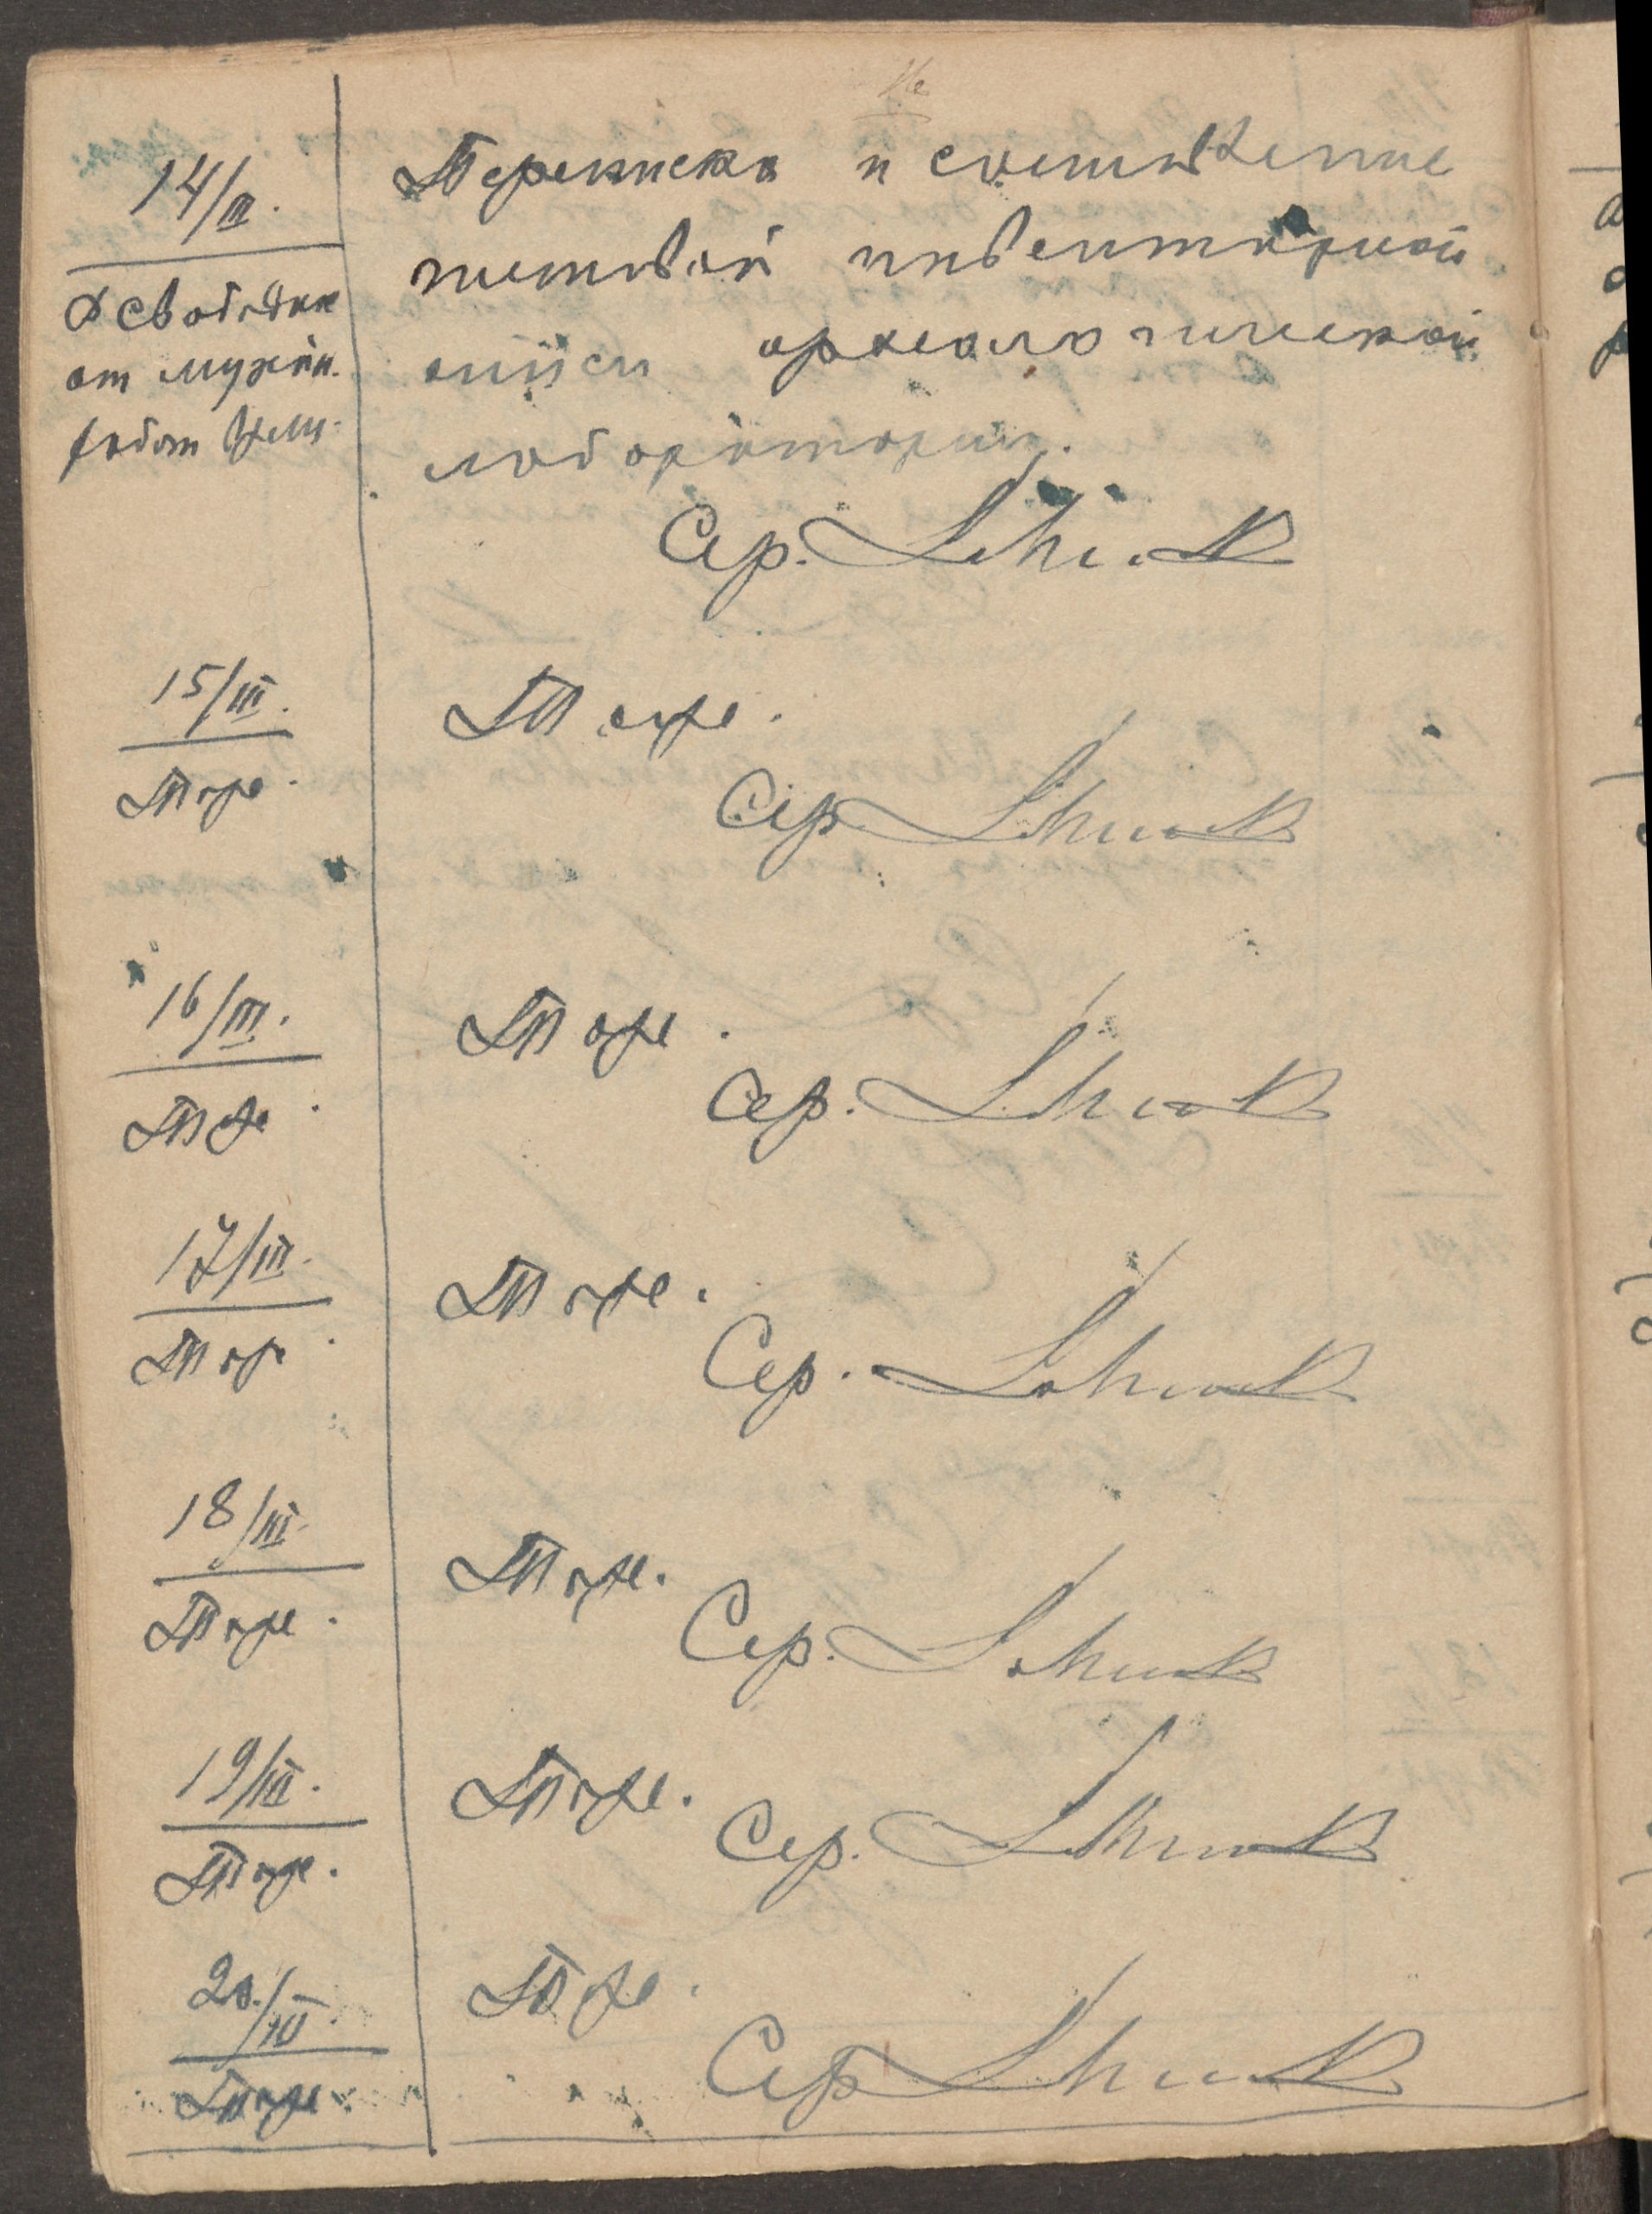 14/III.
Освобожден
от музейн.
работ
Переписка и составление
чистовой инвентарной
описи археологической
лаборатории.
Сер.
15/III.
Тоже.
Тоже.
Сер.
16/III.
Тоже.
Тоже.
Сер.
17/III.
Тоже.
Тоже.
Сер.
18/III.
Тоже.
Тоже.
Сер.
19/III.
Тоже.
Тоже.
Сер.
20/III.
Тоже.
Тоже.
Сер.